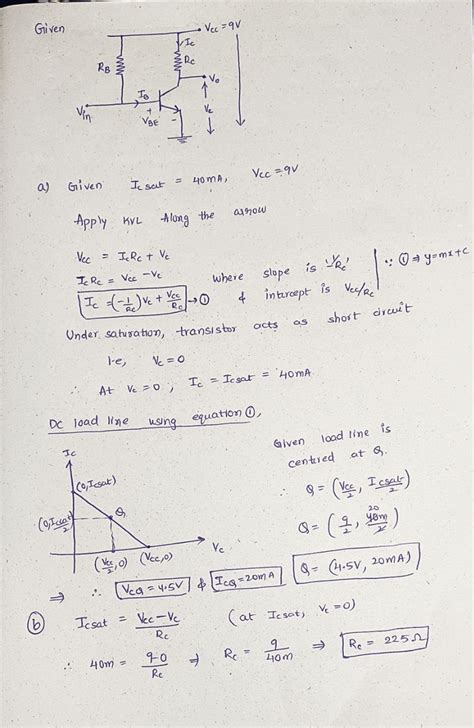 Given
Vcc = 9V
Ic
RB
Rc
Vo
IB
Vin
+
VBE
-
Vc
a) Given Ic sat = 40mA, Vcc = 9V
Apply KVL Along the arrow
Vcc = IcRc + Vc
IcRc = Vcc - Vc
Ic = (-1/Rc)Vc + Vcc/Rc → ①
where slope is '-1/Rc'
& intercept is Vcc/Rc
∵ ① ⇒ y=mx+c
Under saturation, transistor acts as short circuit
i.e, Vc = 0
∴ At Vc = 0, Ic = Icsat = 40mA.
DC load line using equation ①,
Ic
(0,Icsat)
Q
(0,Icsat/2)
(Vcc/2,0)
(Vcc,0)
Vc
Given load line is
centred at Q.
∴ Q = (Vcc/2, Icsat/2)
Q = (9/2, 40m/2)
20
Q = (4.5V, 20mA)
⇒ ∴ VCQ = 4.5V & ICQ = 20mA
b Icsat = Vcc-Vc/Rc (at Icsat, Vc=0)
∴ 40m = 9-0/Rc ⇒ Rc = 9/40m ⇒ Rc = 225Ω